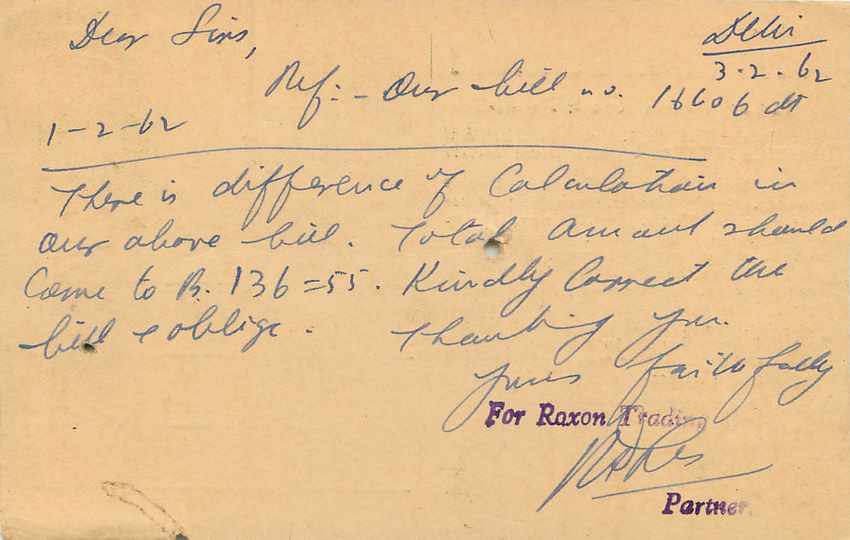 Dear Sirs,
Delhi
3-2-62
Ref:- Our bill no. 16606 dt
1-2-62
There is difference of Calculation in
our above bill. Total Amount should
Come to Rs. 136=55. Kindly Correct the
bill & oblige. Thanking you.
yours faithfully
For Roxon Trading
Partner